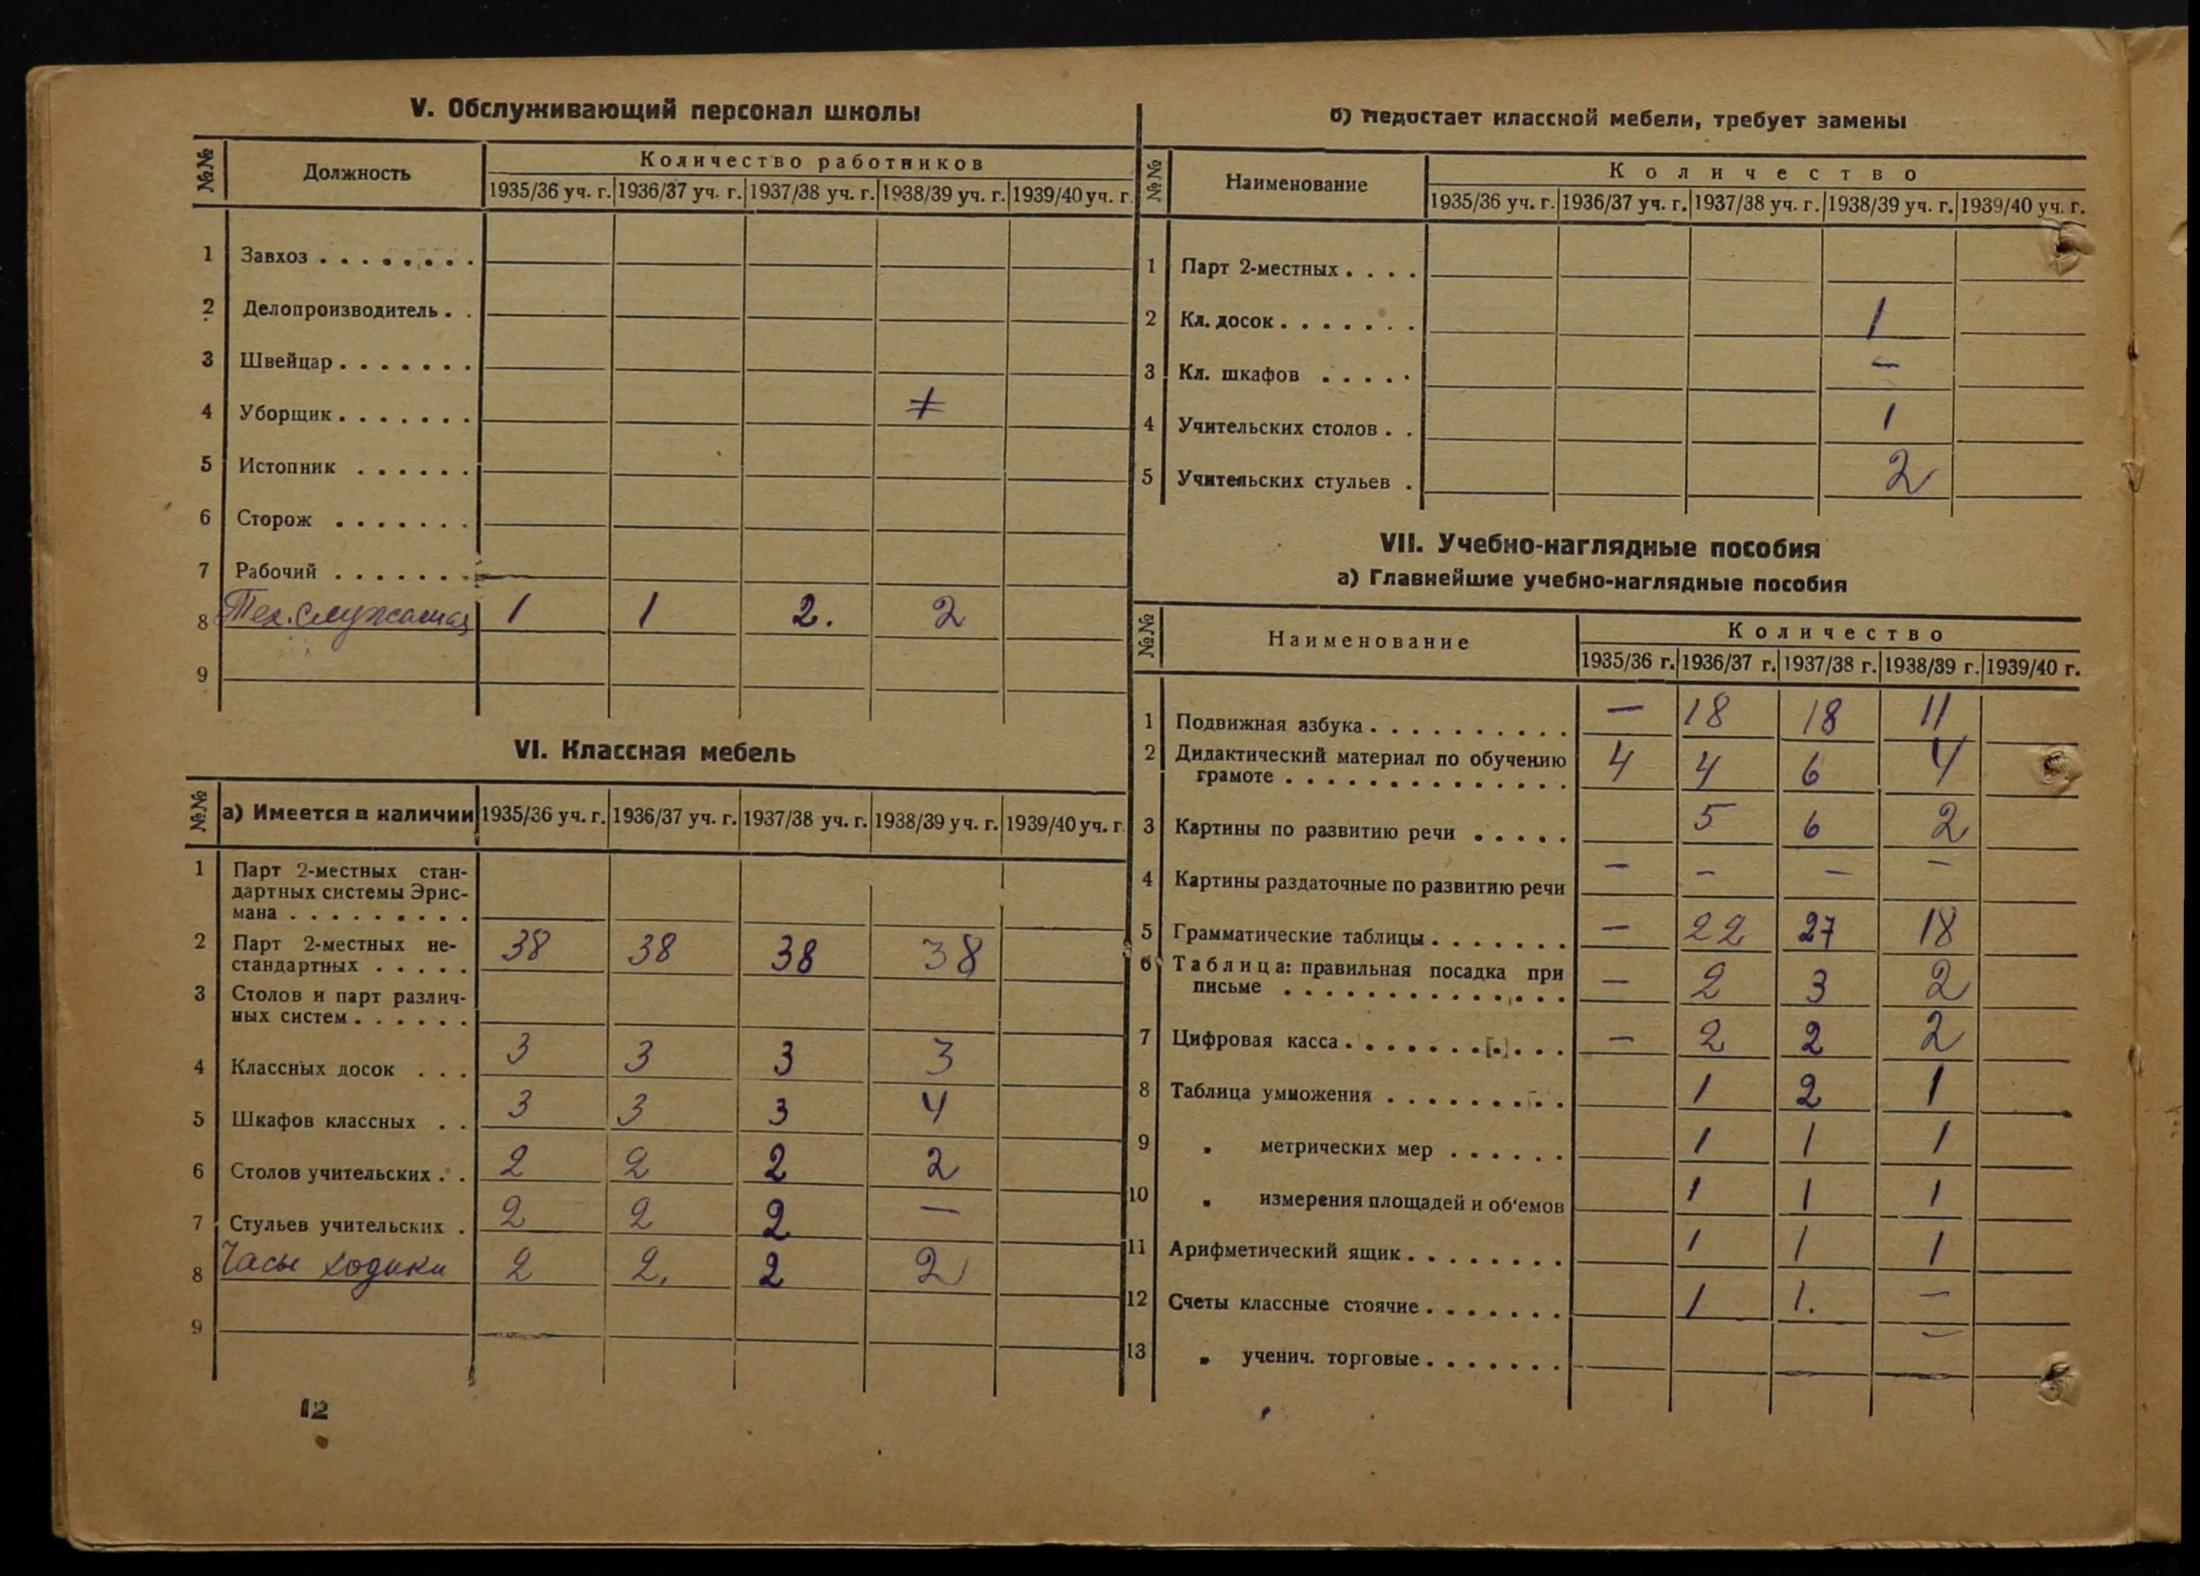 V. Обслуживающий персонал школы
№№ Должность Количество работников
1935/36 уч. г. 1936/37 уч. г. 1937/38 уч. г. 1938/39 уч. г. 1939/40 уч. г.
1 Завхоз . . . . . . . .
2 Делопроизводитель . .
3 Швейцар . . . . . . .
4 Уборщик . . . . . . .
5 Истопник . . . . . .
6 Сторож . . . . . . .
7 Рабочий . . . . . . .
8 Тех. служащая 1 1 2. 2
9
VI. Классная мебель
№№ а) Имеется в наличии 1935/36 уч. г. 1936/37 уч. г. 1937/38 уч. г. 1938/39 уч. г. 1939/40 уч. г.
1 Парт 2-местных стан-
дартных системы Эрис-
мана . . . . . . . . .
2 Парт 2-местных не-
стандартных . . . . . 38 38 38 38
3 Столов и парт различ-
ных систем . . . . . .
4 Классных досок . . . 3 3 3 3
5 Шкафов классных . . 3 3 3 4
6 Столов учительских . . 2 2 2 2
7 Стульев учительских . 2 2 2 —
8 Часы ходики 2 2. 2 2
9
12
б) Недостает классной мебели, требует замены
№№ Наименование Количество
1935/36 уч. г. 1936/37 уч. г. 1937/38 уч. г. 1938/39 уч. г. 1939/40 уч. г.
1 Парт 2-местных . . . .
2 Кл. досок . . . . . . . 1
3 Кл. шкафов . . . . . —
4 Учительских столов . . 1
5 Учительских стульев . 2
VII. Учебно-наглядные пособия
а) Главнейшие учебно-наглядные пособия
№№ Наименование Количество
1935/36 г. 1936/37 г. 1937/38 г. 1938/39 г. 1939/40 г.
1 Подвижная азбука . . . . . . . . . . — 18 18 11
2 Дидактический материал по обучению
грамоте . . . . . . . . . . . . . . 4 4 6 4
3 Картины по развитию речи . . . . . 5 6 2
4 Картины раздаточные по развитию речи — — — —
5 Грамматические таблицы . . . . . . . — 22 27 18
6 Таблица: правильная посадка при
письме . . . . . . . . . . . . . . — 2 3 2
7 Цифровая касса . . . . . . . . . . . — 2 2 2
8 Таблица умножения . . . . . . . . . 1 2 1
9 „ метрических мер . . . . . . 1 1 1
10 „ измерения площадей и об'емов 1 1 1
11 Арифметический ящик . . . . . . . . 1 1 1
12 Счеты классные стоячие . . . . . . . 1 1. —
13 „ ученич. торговые . . . . . . . —